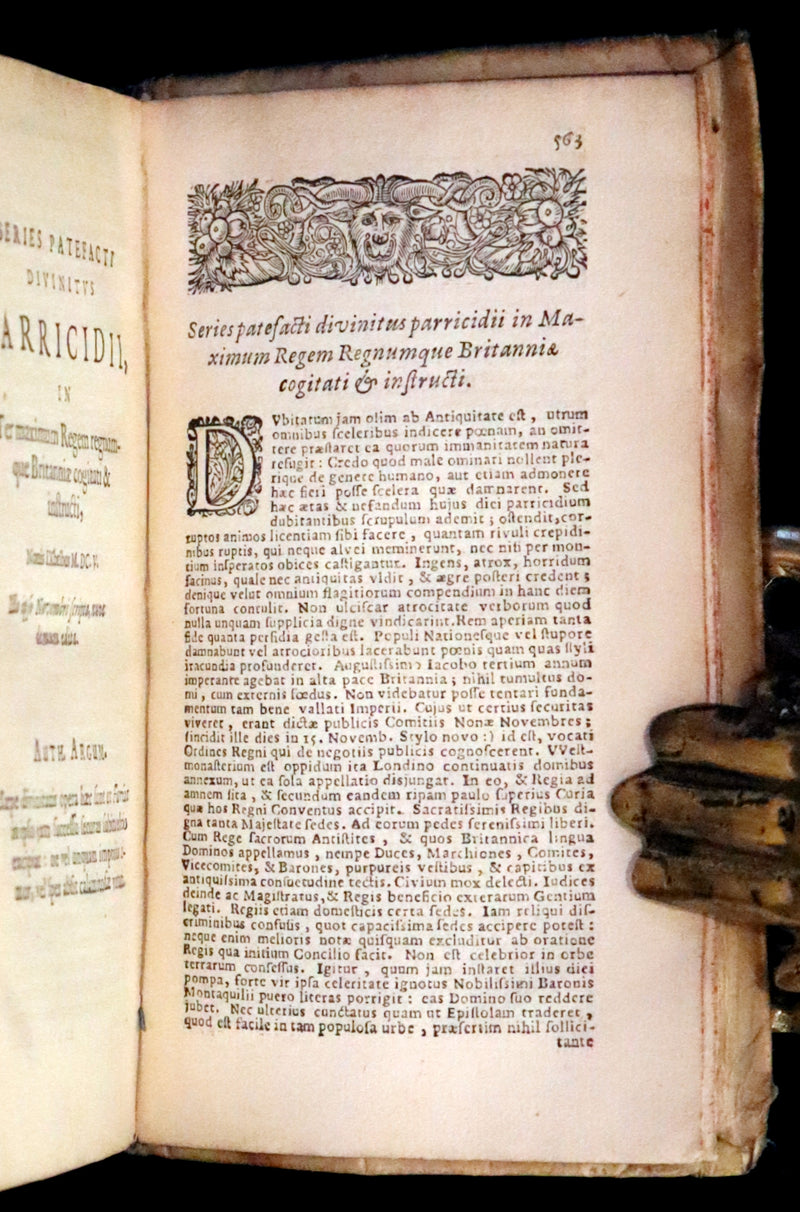 SERIES PATEFACTI
DIVINITVS
ARRICIDII,
IN
Ter maximum Regem regnum-
que Britanniæ cogitati &
instructi,
Nonis IXbribus M.DC.V.
AUTH. ARGUM.
563
Series patefacti divinitus parricidii in Ma-
ximum Regem Regnumque Britanniæ
cogitati & instructi.
DVbitatum jam olim ab Antiquitate est, utrum
omnibus sceleribus indicere pœnam, an omit-
tere præstaret ea quorum immanitatem natura
refugit: Credo quod male ominari nollent ple-
rique de genere humano, aut etiam admonere
hæc fieri posse scelera quæ damnarent. Sed
hæc ætas & nefandum hujus diei parricidium
dubitantibus scrupulum ademit; ostendit, cor-
ruptos animos licentiam sibi facere, quantam rivuli crepidi-
nibus ruptis, qui neque alvei meminerunt, nec nisi per mon-
tium insperatos obices castigantur. Ingens, atrox, horridum
facinus, quale nec antiquitas vidit, & ægre posteri credent;
denique velut omnium flagitiorum compendium in hanc diem
fortuna contulit. Non ulciscar atrocitate verborum quod
nulla unquam supplicia digne vindicarint. Rem aperiam tanta
fide quanta perfidia gesta est. Populi Nationesque vel stupore
damnabunt vel atrocioribus lacerabunt pœnis quam quas styli
iracundia profunderet. Augustissimo Iacobo tertium annum
imperante agebat in alta pace Britannia; nihil tumultus do-
mi, cum externis fœdus. Non videbatur posse tentari funda-
mentum tam bene vallati Imperii. Cujus ut certius securitas
viveret, erant dictæ publicis Comitiis Nonæ Novembres;
(incidit ille dies in 15. Novemb. Stylo novo:) id est, vocati
Ordines Regni qui de negotiis publicis cognoscerent. VVest-
monasterium est oppidum ita Londino continuatis domibus
annexum, ut ea sola appellatio disjungat. In eo, & Regia ad
amnem sita, & secundum eandem ripam paulo superius Curia
quæ hos Regni Conventus accipit. Sacratissimis Regibus di-
gna tanta Majestate sedes. Ad eorum pedes serenissimi liberi.
Cum Rege sacrorum Antistites, & quos Britannica lingua
Dominos appellamus, nempe Duces, Marchiones, Comites,
Vicecomites, & Barones, purpureis vestibus, & capitibus ex
antiquissima consuetudine tectis. Civium mox delecti. Iudices
deinde ac Magistratus, & Regis beneficio exterarum Gentium
legati. Regiis etiam domesticis certa sedes. Iam reliqui dis-
criminibus confusis, quot capacissima sedes accipere potest:
neque enim melioris notæ quisquam excluditur ab oratione
Regis qua initium Concilio facit. Non est celebrior in orbe
terrarum consessus. Igitur, quum jam instaret illius diei
pompa, forte vir ipsa celeritate ignotus Nobilissimi Baronis
Montaquilii puero literas porrigit: eas Domino suo reddere
jubet. Nec ulterius cunctatus quam ut Epistolam traderet,
quod est facile in tam populosa urbe, præsertim nihil sollici-
tante